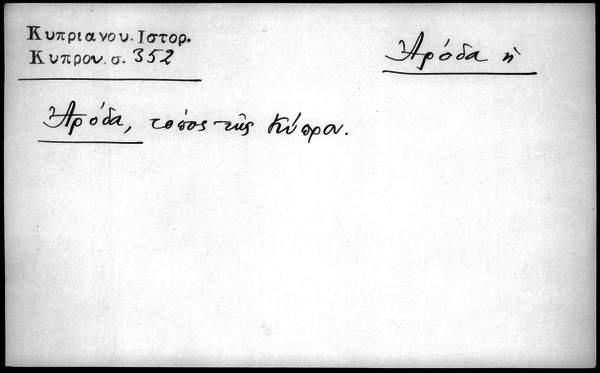 Κυπριανου. Ιστορ.
Κυπρου. σ. 352
Ἀρόδα ἡ
Ἀρόδα, τόπος τῆς Κύπρου.